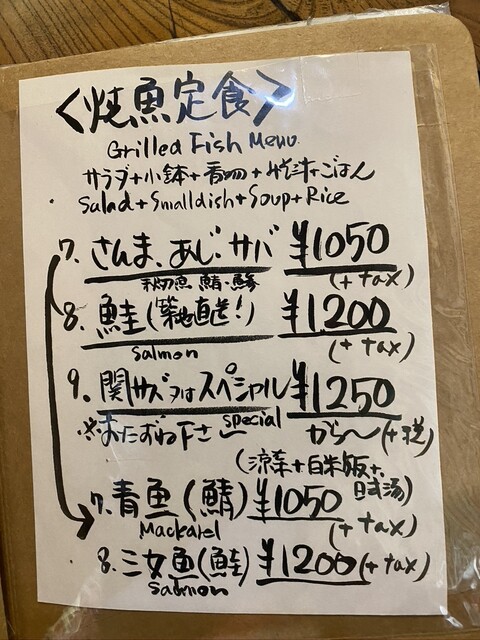 〈焼魚定食〉
Grilled Fish Menu.
サラダ+小鉢+香物+みそ汁+ごはん
Salad+Smalldish+Soup+Rice
7. さんま、あじ・サバ ¥1050
秋刀魚 鯖・鰺 (+tax)
8. 鮭(築地直送!) ¥1200
Salmon (+tax)
9. 関サバ又はスペシャル ¥1250
※おたずね下さい Special から〜(+税)
(涼菜+白米飯+日式湯)
7. 青魚(鯖) ¥1050
Mackarel (+tax)
8. 三文魚(鮭) ¥1200 (+tax)
Salmon